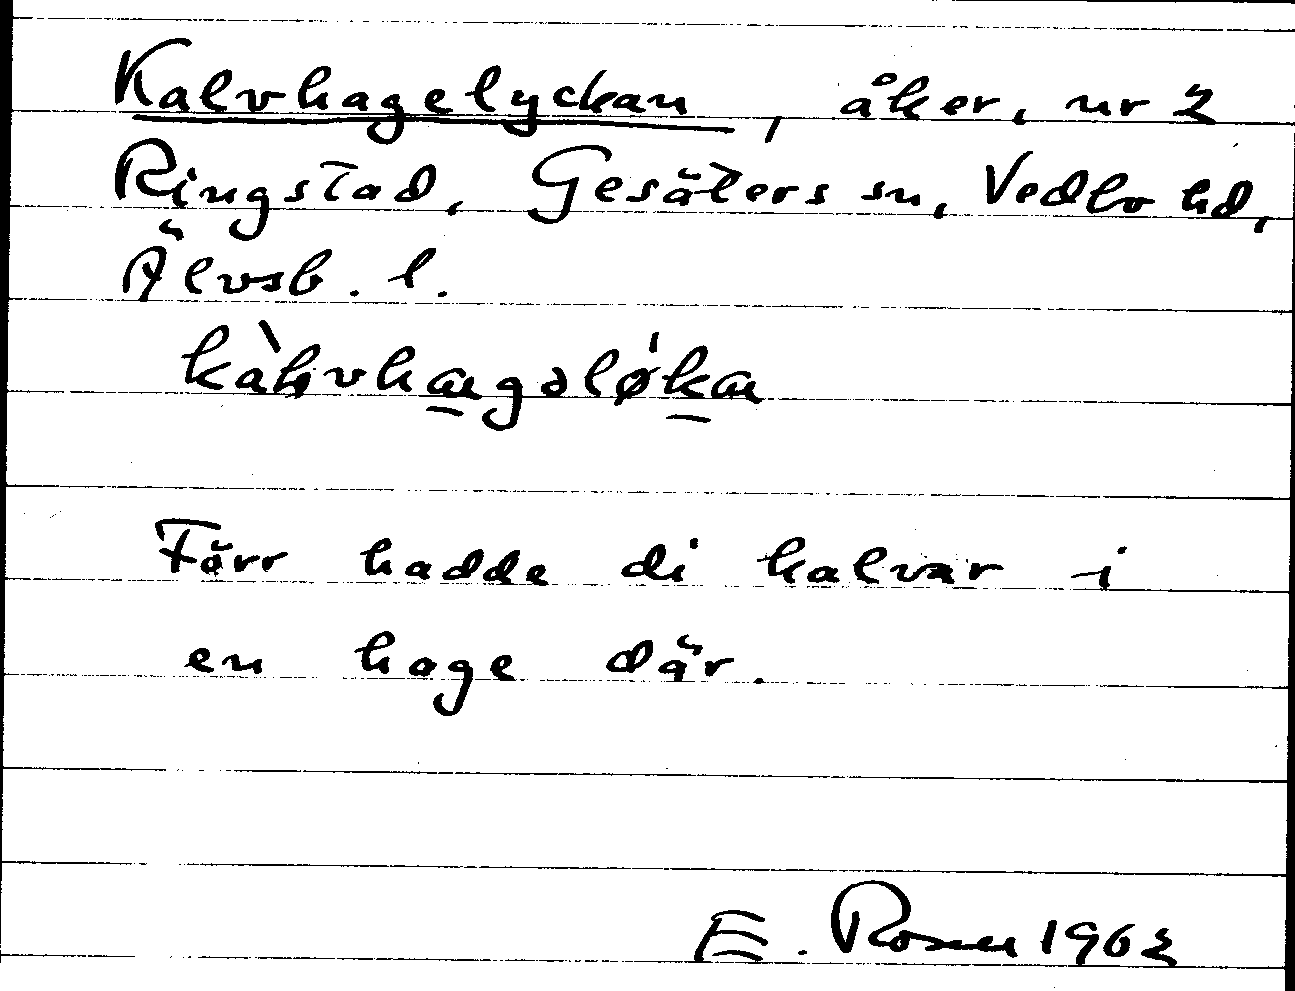 Kalvhagelyckan, åker, nr 2
Ringstad, Gesäters sn, Vedbo hd,
Älvsb. l.
Förr hadde di kalvar i
en hage där.
E. Rosen 1962